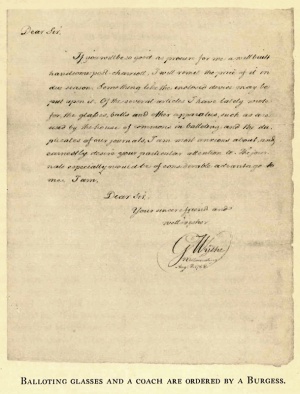 Dear Sir,
If you will be so good as procure for me a well built
handsome post-chariott, I will remit the price of it in
due season. Something like the enclosed device may be
put upon it. Of the several articles I have lately wrote
for, the glasses, balls and other apparatus, such as are
used by the house of commons in balloting, and the du-
plicates of our journals, I am most anxious about, and
earnestly desire your particular attention to. The jour-
nals especially would be of considerable advantage to
me. I am,
Dear Sir,
Your sincere friend and
wellwisher
G Wythe
BALLOTING GLASSES AND A COACH ARE ORDERED BY A BURGESS.